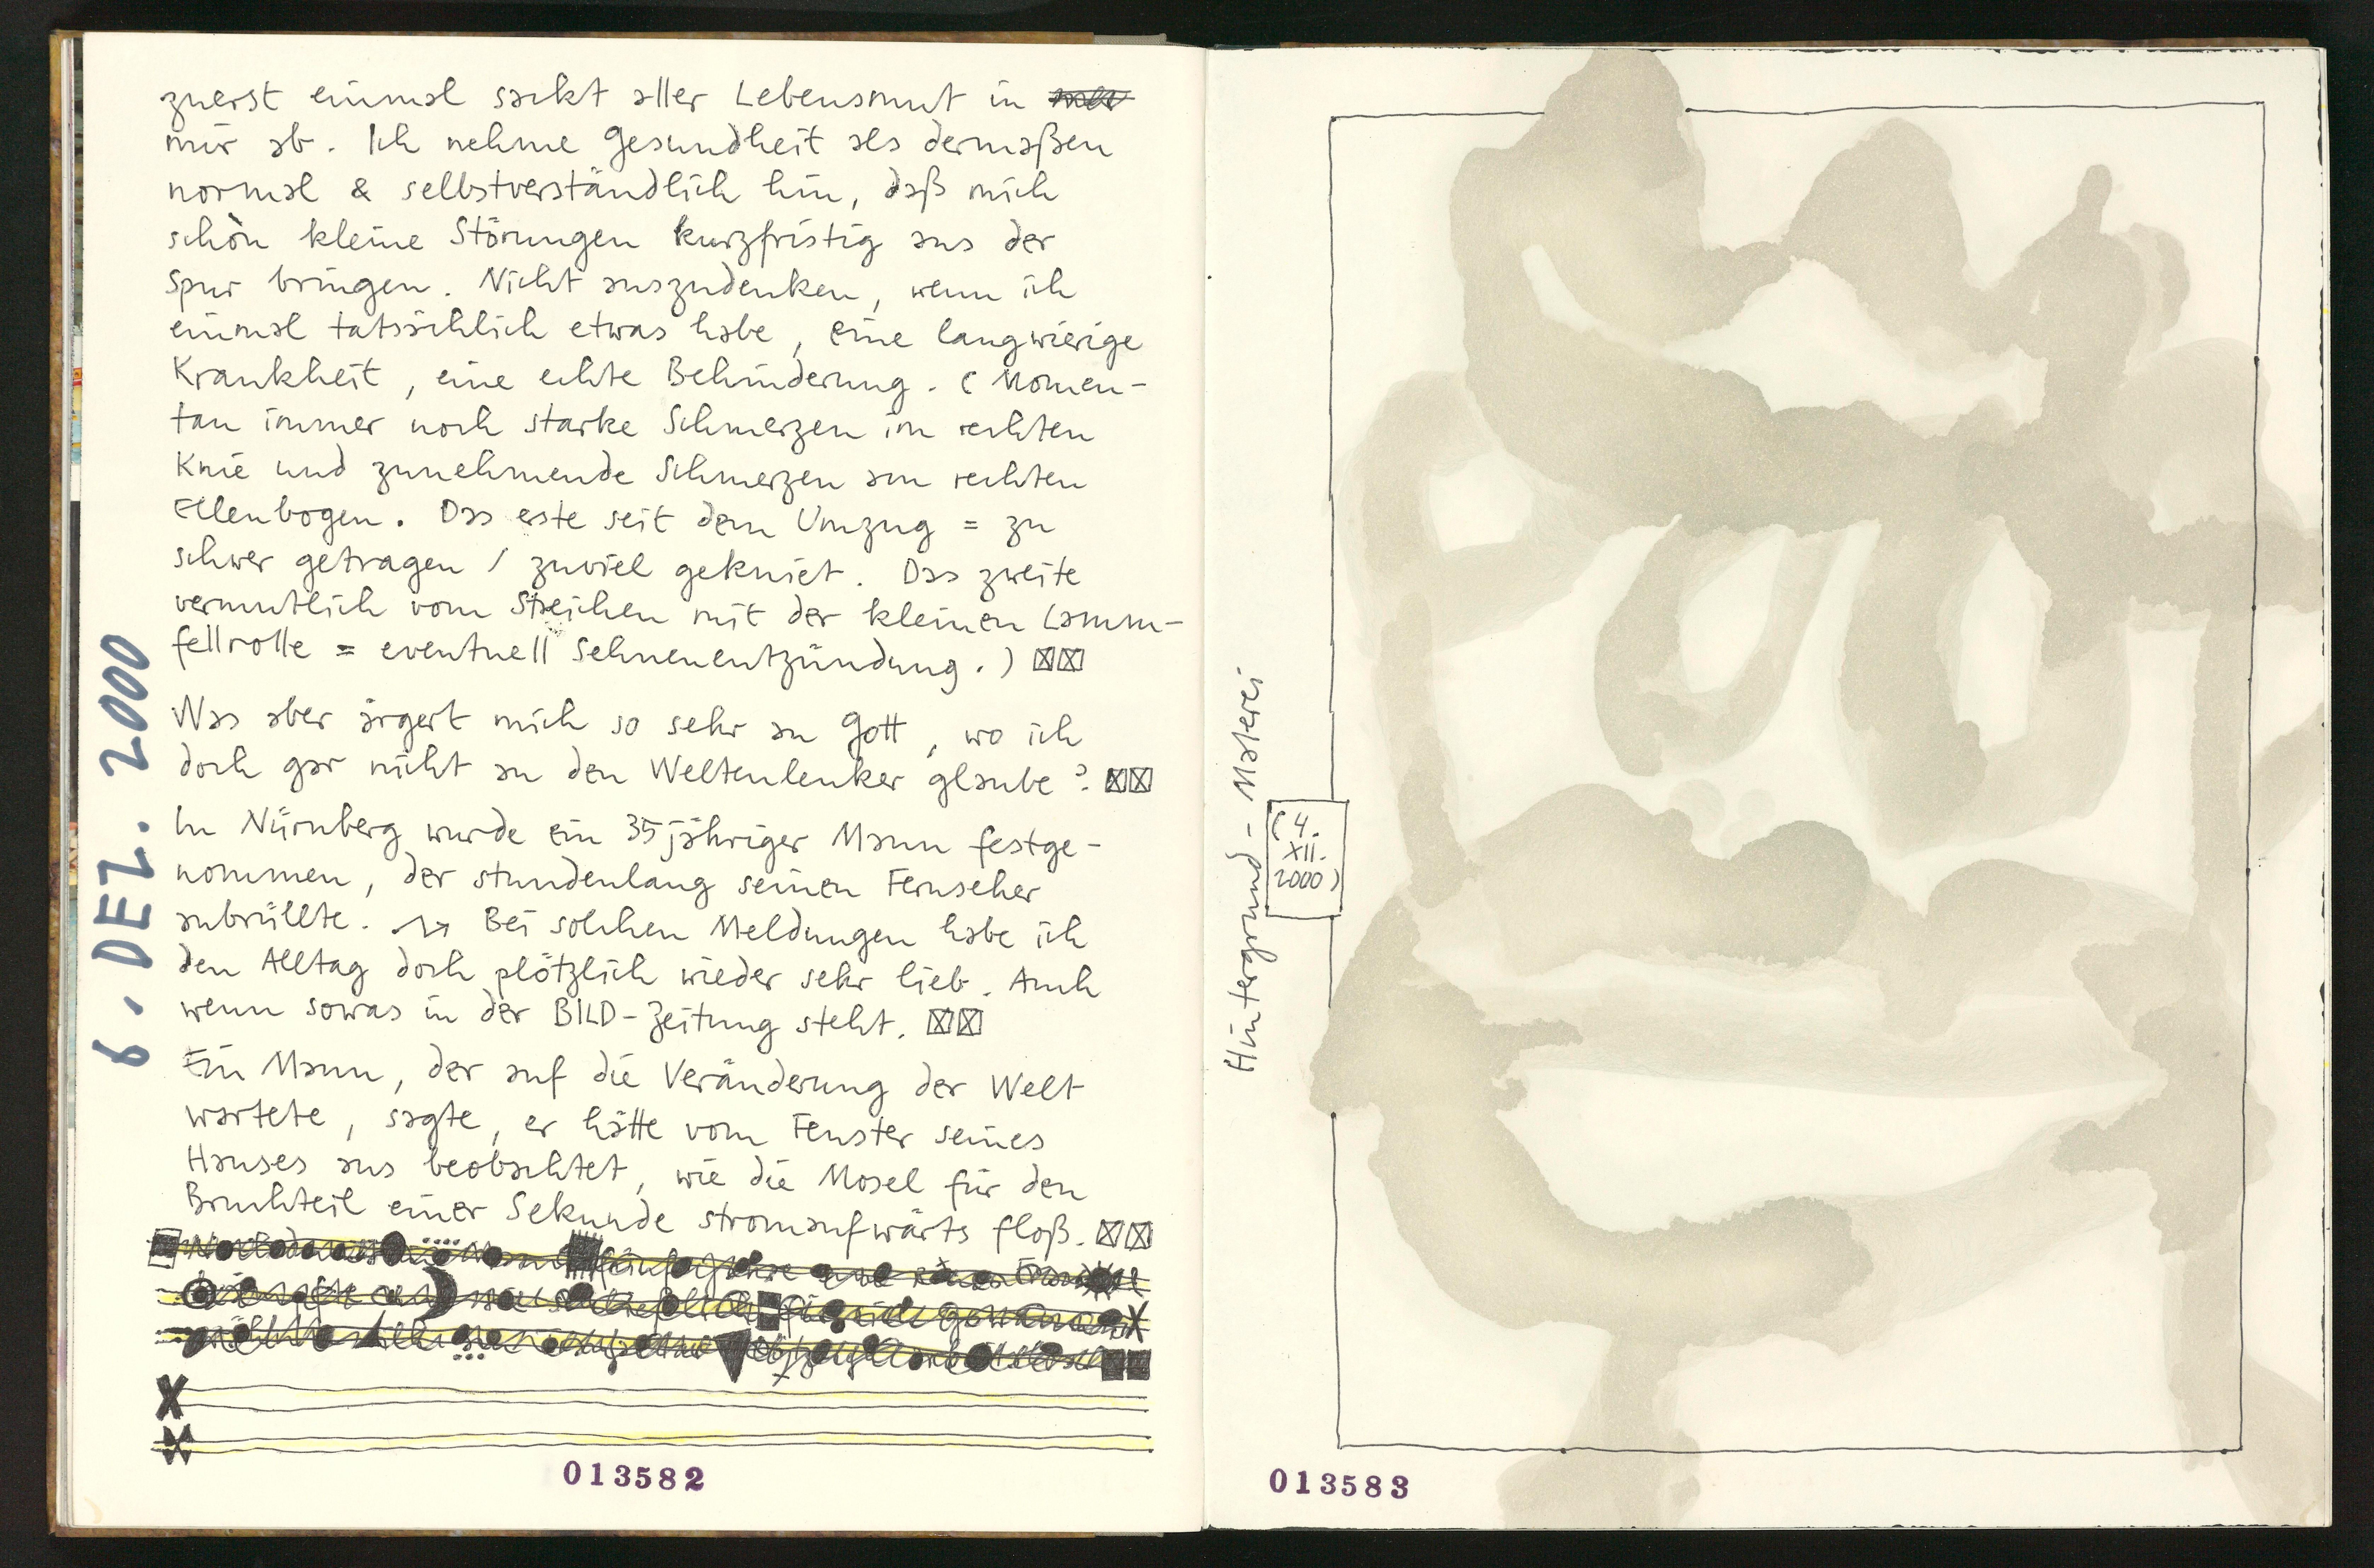 zuerst einmal sackt aller Lebensmut in
mir ab. Ich nehme Gesundheit als dermaßen
normal & selbstverständlich hin, daß mich
schon kleine Störungen kurzfristig aus der
Spur bringen. Nicht auszudenken, wenn ich
einmal tatsächlich etwas habe, eine langwierige
Krankheit, eine echte Behinderung. (Momen-
tan immer noch starke Schmerzen im rechten
Knie und zunehmende Schmerzen am rechten
Ellenbogen. Das erste seit dem Umzug = zu
schwer getragen / zuviel gekniet. Das zweite
vermutlich vom Streichen mit der kleinen Lamm-
fellrolle = eventuell Sehnenentzündung.)
Was aber ärgert mich so sehr an Gott, wo ich
doch gar nicht an den Weltenlenker glaube?
In Nürnberg wurde ein 35jähriger Mann festge-
nommen, der stundenlang seinen Fernseher
anbrüllte. Bei solchen Meldungen habe ich
den Alltag doch plötzlich wieder sehr lieb. Auch
wenn sowas in der BILD-Zeitung steht.
Ein Mann, der auf die Veränderung der Welt
wartete, sagte, er hätte vom Fenster seines
Hauses aus beobachtet, wie die Mosel für den
Bruchteil einer Sekunde stromaufwärts floß.
6. DEZ. 2000
013582
Hintergrund-Malerei
(4.
XII.
2000)
013583